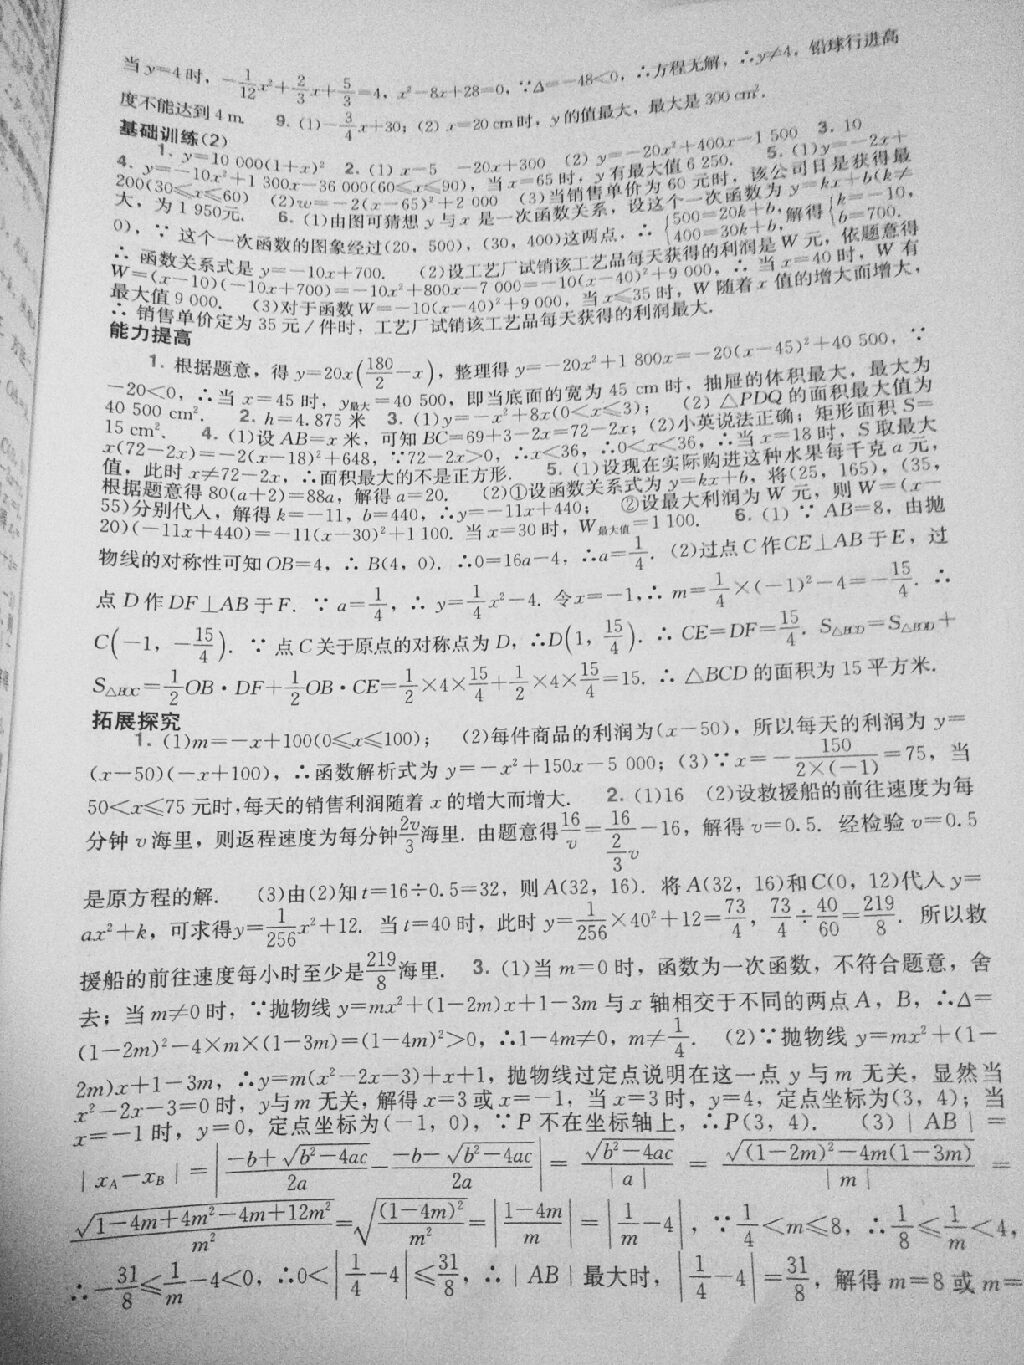 当 y=4 时, -1/12x²+2/3x+5/3=4, x²-8x+28=0, ∵Δ=-48<0, ∴方程无解, ∴y≠4, 铅球行进高
度不能达到 4 m. 9. (1)-3/4x+30; (2) x=20 cm时, y的值最大, 最大是 300 cm².
基础训练(2)
1. y=10 000(1+x)² 2. (1) x-5 -20x+300 (2) y=-20x²+400x-1 500 3. 10
4. y=-10x²+1 300x-36 000(60≤x≤90), 当 x=65 时, y 有最大值 6 250. 5. (1)y=-2x+
200(30≤x≤60) (2)w=-2(x-65)²+2 000 (3)当销售单价为 60 元时, 该公司日是获得最
大, 为 1 950元. 6. (1)由图可猜想 y 与 x 是一次函数关系, 设这个一次函数为 y=kx+b(k≠
0), ∵ 这个一次函数的图象经过(20, 500), (30, 400)这两点, ∴ {500=20k+b, 400=30k+b, 解得 {k=-10, b=700.
∴ 函数关系式是 y=-10x+700. (2)设工艺厂试销该工艺品每天获得的利润是 W 元, 依题意得
W=(x-10)(-10x+700)=-10x²+800x-7 000=-10(x-40)²+9 000, ∴ 当 x=40 时, W 有
最大值 9 000. (3)对于函数 W=-10(x-40)²+9 000, 当 x≤35 时, W 随着 x 值的增大而增大,
∴ 销售单价定为 35 元/件时, 工艺厂试销该工艺品每天获得的利润最大.
能力提高
1. 根据题意, 得 y=20x(180/2-x), 整理得 y=-20x²+1 800x=-20(x-45)²+40 500, ∵
-20<0, ∴当 x=45 时, y最大=40 500, 即当底面的宽为 45 cm 时, 抽屉的体积最大, 最大为
40 500 cm³. 2. h=4.875 米 3. (1)y=-x²+8x(0<x≤3); (2) △PDQ 的面积最大值为
15 cm². 4. (1)设 AB=x 米, 可知 BC=69+3-2x=72-2x; (2)小英说法正确; 矩形面积 S=
x(72-2x)=-2(x-18)²+648, ∵72-2x>0, ∴x<36, ∴0<x<36, ∴当 x=18 时, S 取最大
值, 此时 x≠72-2x, ∴面积最大的不是正方形. 5. (1)设现在实际购进这种水果每千克 a 元,
根据题意得 80(a+2)=88a, 解得 a=20. (2)①设函数关系式为 y=kx+b, 将(25, 165), (35,
55)分别代人, 解得 k=-11, b=440, ∴y=-11x+440; ②设最大利润为 W 元, 则 W=(x-
20)(-11x+440)=-11(x-30)²+1 100. 当 x=30 时, W最大值=1 100. 6. (1) ∵ AB=8, 由抛
物线的对称性可知 OB=4, ∴ B(4, 0). ∴0=16a-4, ∴a=1/4. (2)过点 C 作 CE⊥AB 于 E, 过
点 D 作 DF⊥AB 于 F. ∵ a=1/4, ∴ y=1/4x²-4. 令x=-1, ∴ m=1/4×(-1)²-4=-15/4. ∴
C(-1, -15/4). ∵ 点 C 关于原点的对称点为 D, ∴D(1, 15/4). ∴ CE=DF=15/4. S△BCD=S△BOD+
S△BOC=1/2OB·DF+1/2OB·CE=1/2×4×15/4+1/2×4×15/4=15. ∴ △BCD 的面积为 15 平方米.
拓展探究
1. (1)m=-x+100(0≤x≤100); (2)每件商品的利润为(x-50), 所以每天的利润为 y=
(x-50)(-x+100), ∴函数解析式为 y=-x²+150x-5 000; (3)∵ x=-150/2×(-1)=75, 当
50<x≤75 元时, 每天的销售利润随着 x 的增大而增大. 2. (1)16 (2)设救援船的前往速度为每
分钟 v 海里, 则返程速度为每分钟2v/3海里. 由题意得16/v=16/(2/3v)-16, 解得 v=0.5. 经检验 v=0.5
是原方程的解. (3)由(2)知 t=16÷0.5=32, 则 A(32, 16). 将 A(32, 16)和 C(0, 12)代人 y=
ax²+k, 可求得y=1/256x²+12. 当 t=40 时, 此时 y=1/256×40²+12=73/4, 73/4÷40/60=219/8. 所以救
援船的前往速度每小时至少是219/8海里. 3. (1)当 m=0 时, 函数为一次函数, 不符合题意, 舍
去; 当 m≠0 时, ∵抛物线 y=mx²+(1-2m)x+1-3m 与 x 轴相交于不同的两点 A, B, ∴Δ=
(1-2m)²-4×m×(1-3m)=(1-4m)²>0, ∴1-4m≠0, m≠1/4. (2)∵抛物线 y=mx²+(1-
2m)x+1-3m, ∴y=m(x²-2x-3)+x+1, 抛物线过定点说明在这一点 y 与 m 无关, 显然当
x²-2x-3=0 时, y与 m 无关, 解得 x=3 或 x=-1, 当 x=3 时, y=4, 定点坐标为(3, 4); 当
x=-1 时, y=0, 定点坐标为(-1, 0), ∵ P 不在坐标轴上, ∴P(3, 4). (3) |AB|=
|xA-xB|=|(-b+√(b²-4ac))/2a-(-b-√(b²-4ac))/2a|=√(b²-4ac)/|a|=√((1-2m)²-4m(1-3m))/|m|=
√(1-4m+4m²-4m+12m²)/m²=√((1-4m)²/m²)=|(1-4m)/m|=|1/m-4|, ∵1/4<m≤8, ∴1/8≤1/m<4,
∴-31/8≤1/m-4<0, ∴0<|1/4-4|≤31/8, ∴ |AB|最大时, |1/4-4|=31/8, 解得 m=8 或 m=